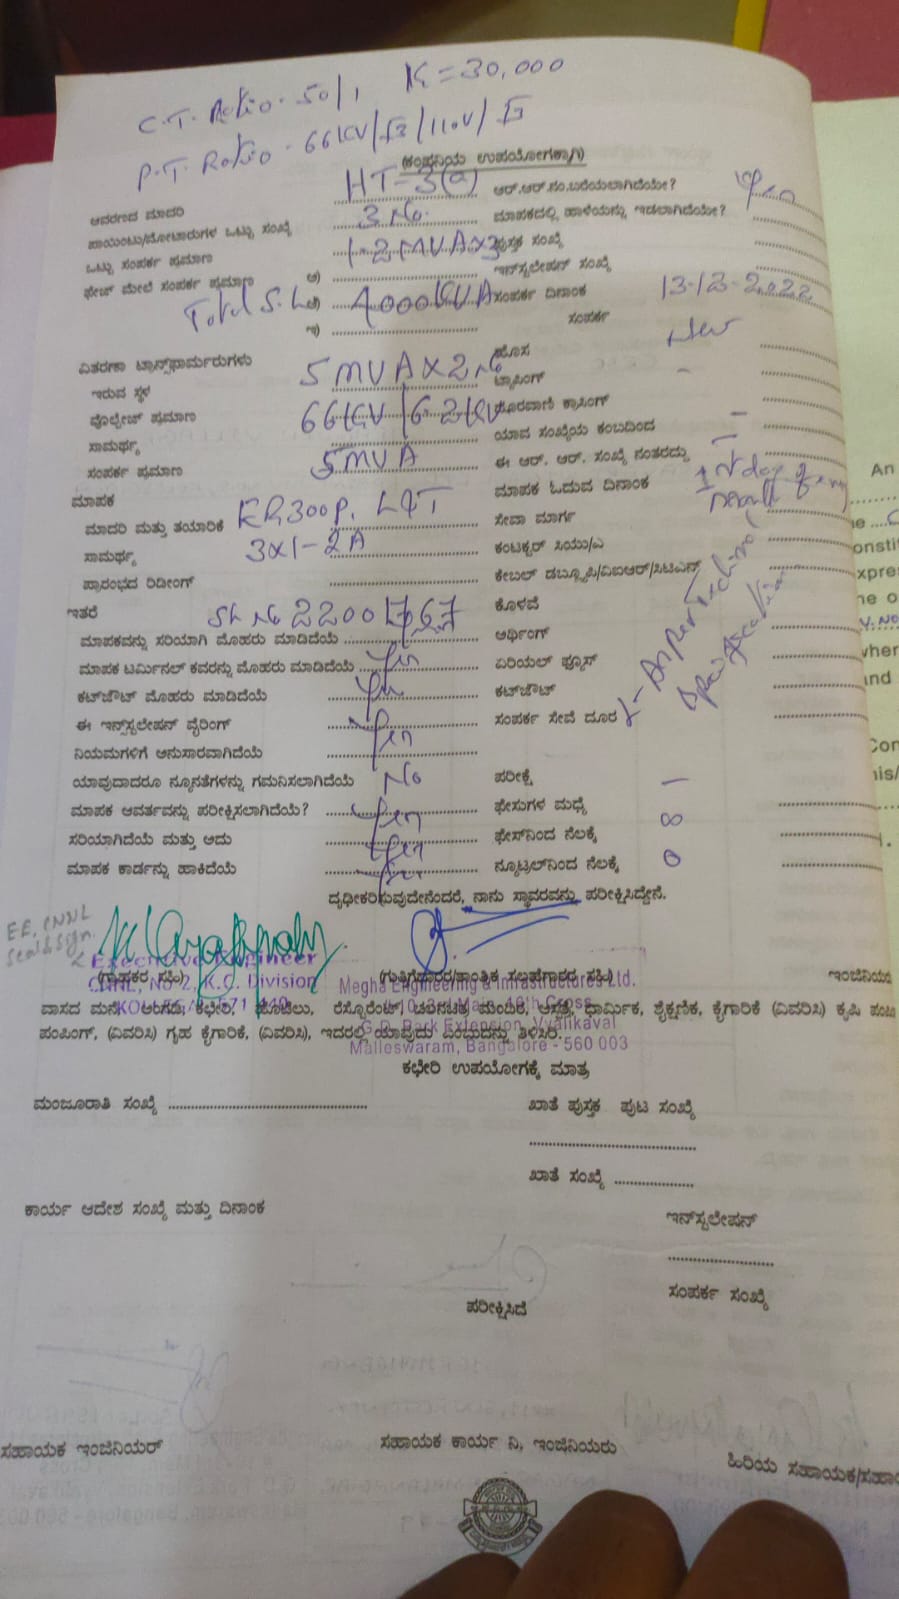 C.T. Ratio. 50/1 K = 30,000
P.T. Ratio. 66KV/√3/110V/√3
(ಕಂಪನಿಯ ಉಪಯೋಗಕ್ಕಾಗಿ)
ಆವರಣದ ಮಾದರಿ HT-3(a) ಆರ್.ಆರ್.ಸಂ.ಬರೆಯಲಾಗಿದೆಯೇ? Yes
ಪಾಯಿಂಟು/ಮೋಟಾರುಗಳ ಒಟ್ಟು ಸಂಖ್ಯೆ 3 No. ಮಾಪಕದಲ್ಲಿ ಹಾಳೆಯನ್ನು ಇಡಲಾಗಿದೆಯೇ?
ಒಟ್ಟು ಸಂಪರ್ಕ ಪ್ರಮಾಣ 1-2 MVA X 3 ಪುಸ್ತಕ ಸಂಖ್ಯೆ
ಫೇಜ್ ಮೇಲೆ ಸಂಪರ್ಕ ಪ್ರಮಾಣ ಅ) ಇನ್‌ಸ್ಟಲೇಷನ್ ಸಂಖ್ಯೆ
Total 4000KVA ಸಂಪರ್ಕ ದಿನಾಂಕ 13-12-2022
ಇ) ಸಂಪರ್ಕ
ವಿತರಣಾ ಟ್ರಾನ್ಸ್‌ಫಾರ್ಮರುಗಳು ಹೊಸ New
ಇರುವ ಸ್ಥಳ 5 MVA X 2 No ಟ್ಯಾಪಿಂಗ್ -
ವೋಲ್ಟೇಜ್ ಪ್ರಮಾಣ 66KV / ಕ್ರಾಸಿಂಗ್
ಸಾಮರ್ಥ್ಯ ಯಾವ ಸಂಖ್ಯೆಯ ಕಂಬದಿಂದ -
ಸಂಪರ್ಕ ಪ್ರಮಾಣ 5MVA ಈ ಆರ್. ಆರ್. ಸಂಖ್ಯೆ ನಂತರದ್ದು -
ಮಾಪಕ ಮಾಪಕ ಓದುವ ದಿನಾಂಕ 1st day of
ಮಾದರಿ ಮತ್ತು ತಯಾರಿಕೆ ER300P, L&T ಸೇವಾ ಮಾರ್ಗ
ಸಾಮರ್ಥ್ಯ 3x1-2A ಕಂಟಕ್ಟರ್ ಸಿಯು/ಎ
ಪ್ರಾರಂಭದ ರಿಡೀಂಗ್ ಕೇಬಲ್ ಡಬ್ಲೂಪಿ/ವಿಐಆರ್/ಸಿಟಿಎಸ್
ಇತರೆ Sl. No ಕೊಳವೆ
ಮಾಪಕವನ್ನು ಸರಿಯಾಗಿ ಮೊಹರು ಮಾಡಿದೆಯೆ Yes ಅರ್ಥಿಂಗ್
ಮಾಪಕ ಟರ್ಮಿನಲ್ ಕವರನ್ನು ಮೊಹರು ಮಾಡಿದೆಯೆ Yes ಏರಿಯಲ್ ಫ್ಯೂಸ್
ಕಟ್‌ಔಟ್ ಮೊಹರು ಮಾಡಿದೆಯೆ Yes ಕಟ್‌ಔಟ್
ಈ ಇನ್‌ಸ್ಟಲೇಷನ್ ವೈರಿಂಗ್ Yes ಸಂಪರ್ಕ ಸೇವೆ ದೂರ
As per Technical Specification
ನಿಯಮಗಳಿಗೆ ಅನುಸಾರವಾಗಿದೆಯೆ
ಯಾವುದಾದರೂ ನ್ಯೂನತೆಗಳನ್ನು ಗಮನಿಸಲಾಗಿದೆಯೆ No ಪರೀಕ್ಷೆ
ಮಾಪಕ ಆವರ್ತವನ್ನು ಪರೀಕ್ಷಿಸಲಾಗಿದೆಯೆ? Yes ಫೇಸುಗಳ ಮಧ್ಯೆ ∞
ಸರಿಯಾಗಿದೆಯೆ ಮತ್ತು ಅದು Yes ಫೇಸ್‌ನಿಂದ ನೆಲಕ್ಕೆ
ಮಾಪಕ ಕಾರ್ಡನ್ನು ಹಾಕಿದೆಯೆ Yes ನ್ಯೂಟ್ರಲ್‌ನಿಂದ ನೆಲಕ್ಕೆ 0
ದೃಢೀಕರಿಸುವುದೇನೆಂದರೆ, ನಾನು ಸ್ಥಾವರವನ್ನು ಪರೀಕ್ಷಿಸಿದ್ದೇನೆ.
EE, CNNL
Seal & Sign.
(ಗ್ರಾಹಕರ ಸಹಿ) (ಗುತ್ತಿಗೆದಾರರ/ತಾಂತ್ರಿಕ ಸಲಹೆಗಾರರ ಸಹಿ) ಇಂಜಿನಿಯರ
Executive Engineer
CNNL, No 2, K.C. Division
Megha Engineering & Infrastructures Ltd.
3rd Main, 10th Cross
G.D. Park Extension, Vyalikaval
Malleswaram, Bangalore - 560 003
ವಾಸದ ಮನೆ, ಅಂಗಡಿ, ಕಛೇರಿ, ಹೋಟೆಲು, ರೆಸ್ಟೊರೆಂಟ್, ಚಲನಚಿತ್ರ ಮಂದಿರ, ಆಸ್ಪತ್ರೆ, ಧಾರ್ಮಿಕ, ಶೈಕ್ಷಣಿಕ, ಕೈಗಾರಿಕೆ (ವಿವರಿಸಿ) ಕೃಷಿ ಪಂಪು
ಪಂಪಿಂಗ್, (ವಿವರಿಸಿ) ಗೃಹ ಕೈಗಾರಿಕೆ, (ವಿವರಿಸಿ), ಇದರಲ್ಲಿ ಯಾವುದು ಎಂಬುದನ್ನು ತಿಳಿಸಿರಿ.
ಕಛೇರಿ ಉಪಯೋಗಕ್ಕೆ ಮಾತ್ರ
ಮಂಜೂರಾತಿ ಸಂಖ್ಯೆ ಖಾತೆ ಪುಸ್ತಕ ಪುಟ ಸಂಖ್ಯೆ
ಖಾತೆ ಸಂಖ್ಯೆ
ಕಾರ್ಯ ಆದೇಶ ಸಂಖ್ಯೆ ಮತ್ತು ದಿನಾಂಕ ಇನ್‌ಸ್ಟಲೇಷನ್
ಸಂಪರ್ಕ ಸಂಖ್ಯೆ
ಪರೀಕ್ಷಿಸಿದೆ
ಸಹಾಯಕ ಇಂಜಿನಿಯರ್ ಸಹಾಯಕ ಕಾರ್ಯ ನಿ, ಇಂಜಿನಿಯರು ಹಿರಿಯ ಸಹಾಯಕ/ಸಹಾ